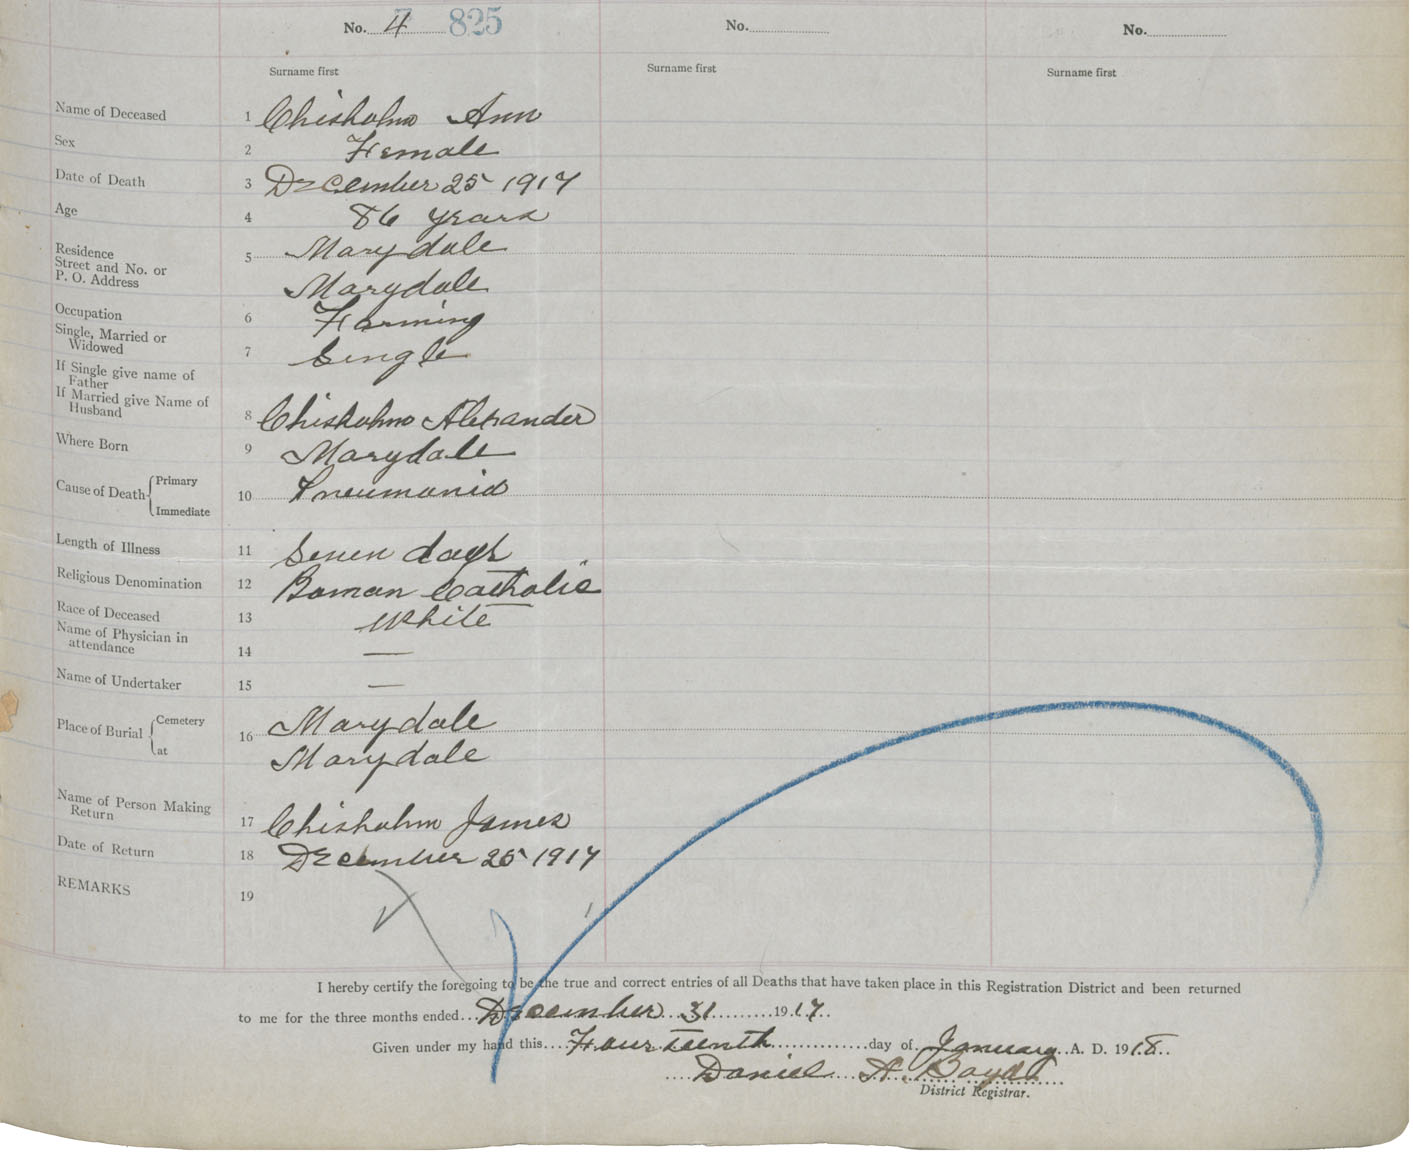 No. 4 825 No. No.
Surname first Surname first Surname first
Name of Deceased 1 Chisholm Ann
Sex 2 Female
Date of Death 3 December 25 1917
Age 4 86 years
Residence 5 Marydale
Street and No. or
P. O. Address Marydale
Occupation 6 Farming
Single, Married or
Widowed 7 Single
If Single give name of
Father
If Married give Name of
Husband 8 Chisholm Alexander
Where Born 9 Marydale
Cause of Death { Primary
Immediate 10 Pneumonia
Length of Illness 11 Seven days
Religious Denomination 12 Roman Catholic
Race of Deceased 13 White
Name of Physician in
attendance 14 —
Name of Undertaker 15 —
Place of Burial { Cemetery 16 Marydale
at Marydale
Name of Person Making
Return 17 Chisholm James
Date of Return 18 December 25 1917
REMARKS 19
I hereby certify the foregoing to be the true and correct entries of all Deaths that have taken place in this Registration District and been returned
to me for the three months ended December 31 1917.
Given under my hand this Fourteenth day of January A. D. 1918.
Daniel A. Boyd
District Registrar.